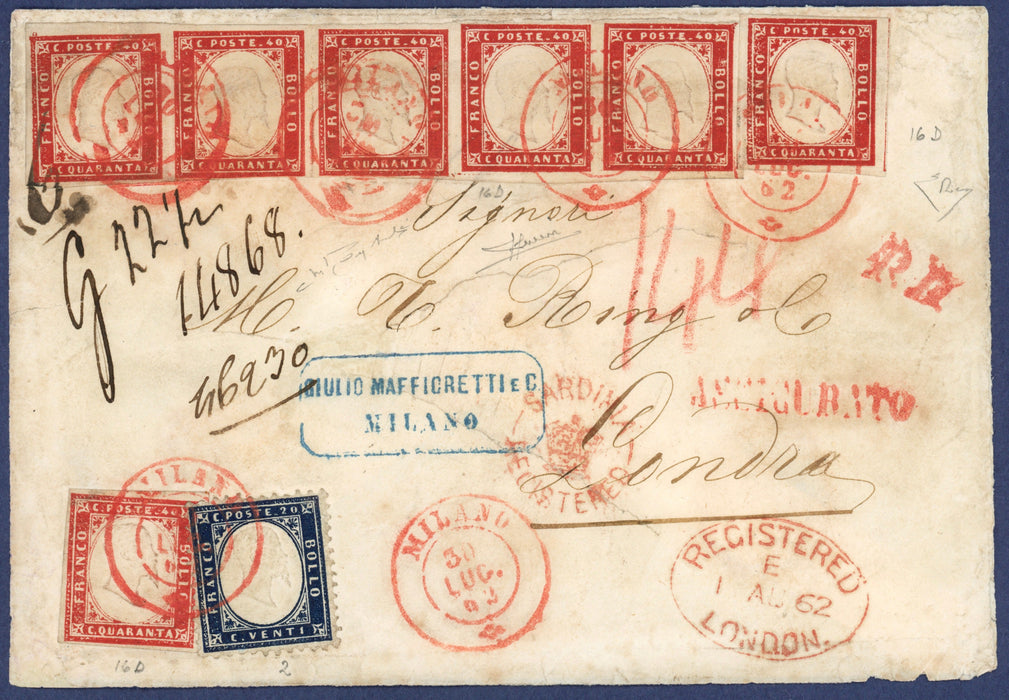 C. POSTE. 40 FRANCO BOLLO C. QUARANTA
C. POSTE. 40 FRANCO BOLLO C. QUARANTA
C. POSTE. 40 FRANCO BOLLO C. QUARANTA
C. POSTE. 40 FRANCO BOLLO C. QUARANTA
C. POSTE. 40 FRANCO BOLLO C. QUARANTA
C. POSTE. 40 FRANCO BOLLO C. QUARANTA
LUG.
62
16 D
16 D
Signori
G 22½
14868.
46930
144
M. N. Ring & C.
P.D.
GIULIO MAFFIORETTI e C.
MILANO
ASSICURATO
SARDINIA
REGISTERED
Londra
C. POSTE. 40 FRANCO BOLLO C. QUARANTA
MILANO
C. POSTE. 20 FRANCO BOLLO C. VENTI
MILANO
30
LUG.
62
REGISTERED
E
1 AU 62
LONDON.
16 D
2